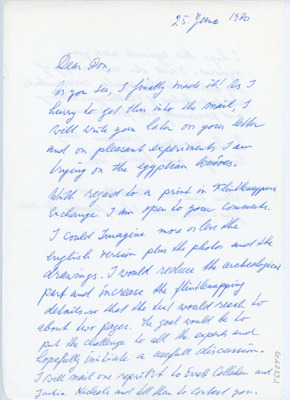 25. June 1980
Dear Don,
As you see, I finally made it! As I
hurry to get this into the mail, I
will write you later on your letter
and on pleasant experiments I am
trying on the egyptian knives.
With regard to a print in Flintknappers
Exchange I am open to your comments.
I could imagine more or less the
english version plus the photos and the
drawings. I would reduce the archeological
part and increase the flintknapping
details so that the text would reach to
about two pages. The goal would be to
put the challenge to all the experts and
hopefully initiate a usefull discussion.
I will mail one reprint to Errett Callahan and
Jackie Nichols and tell them to contact you.